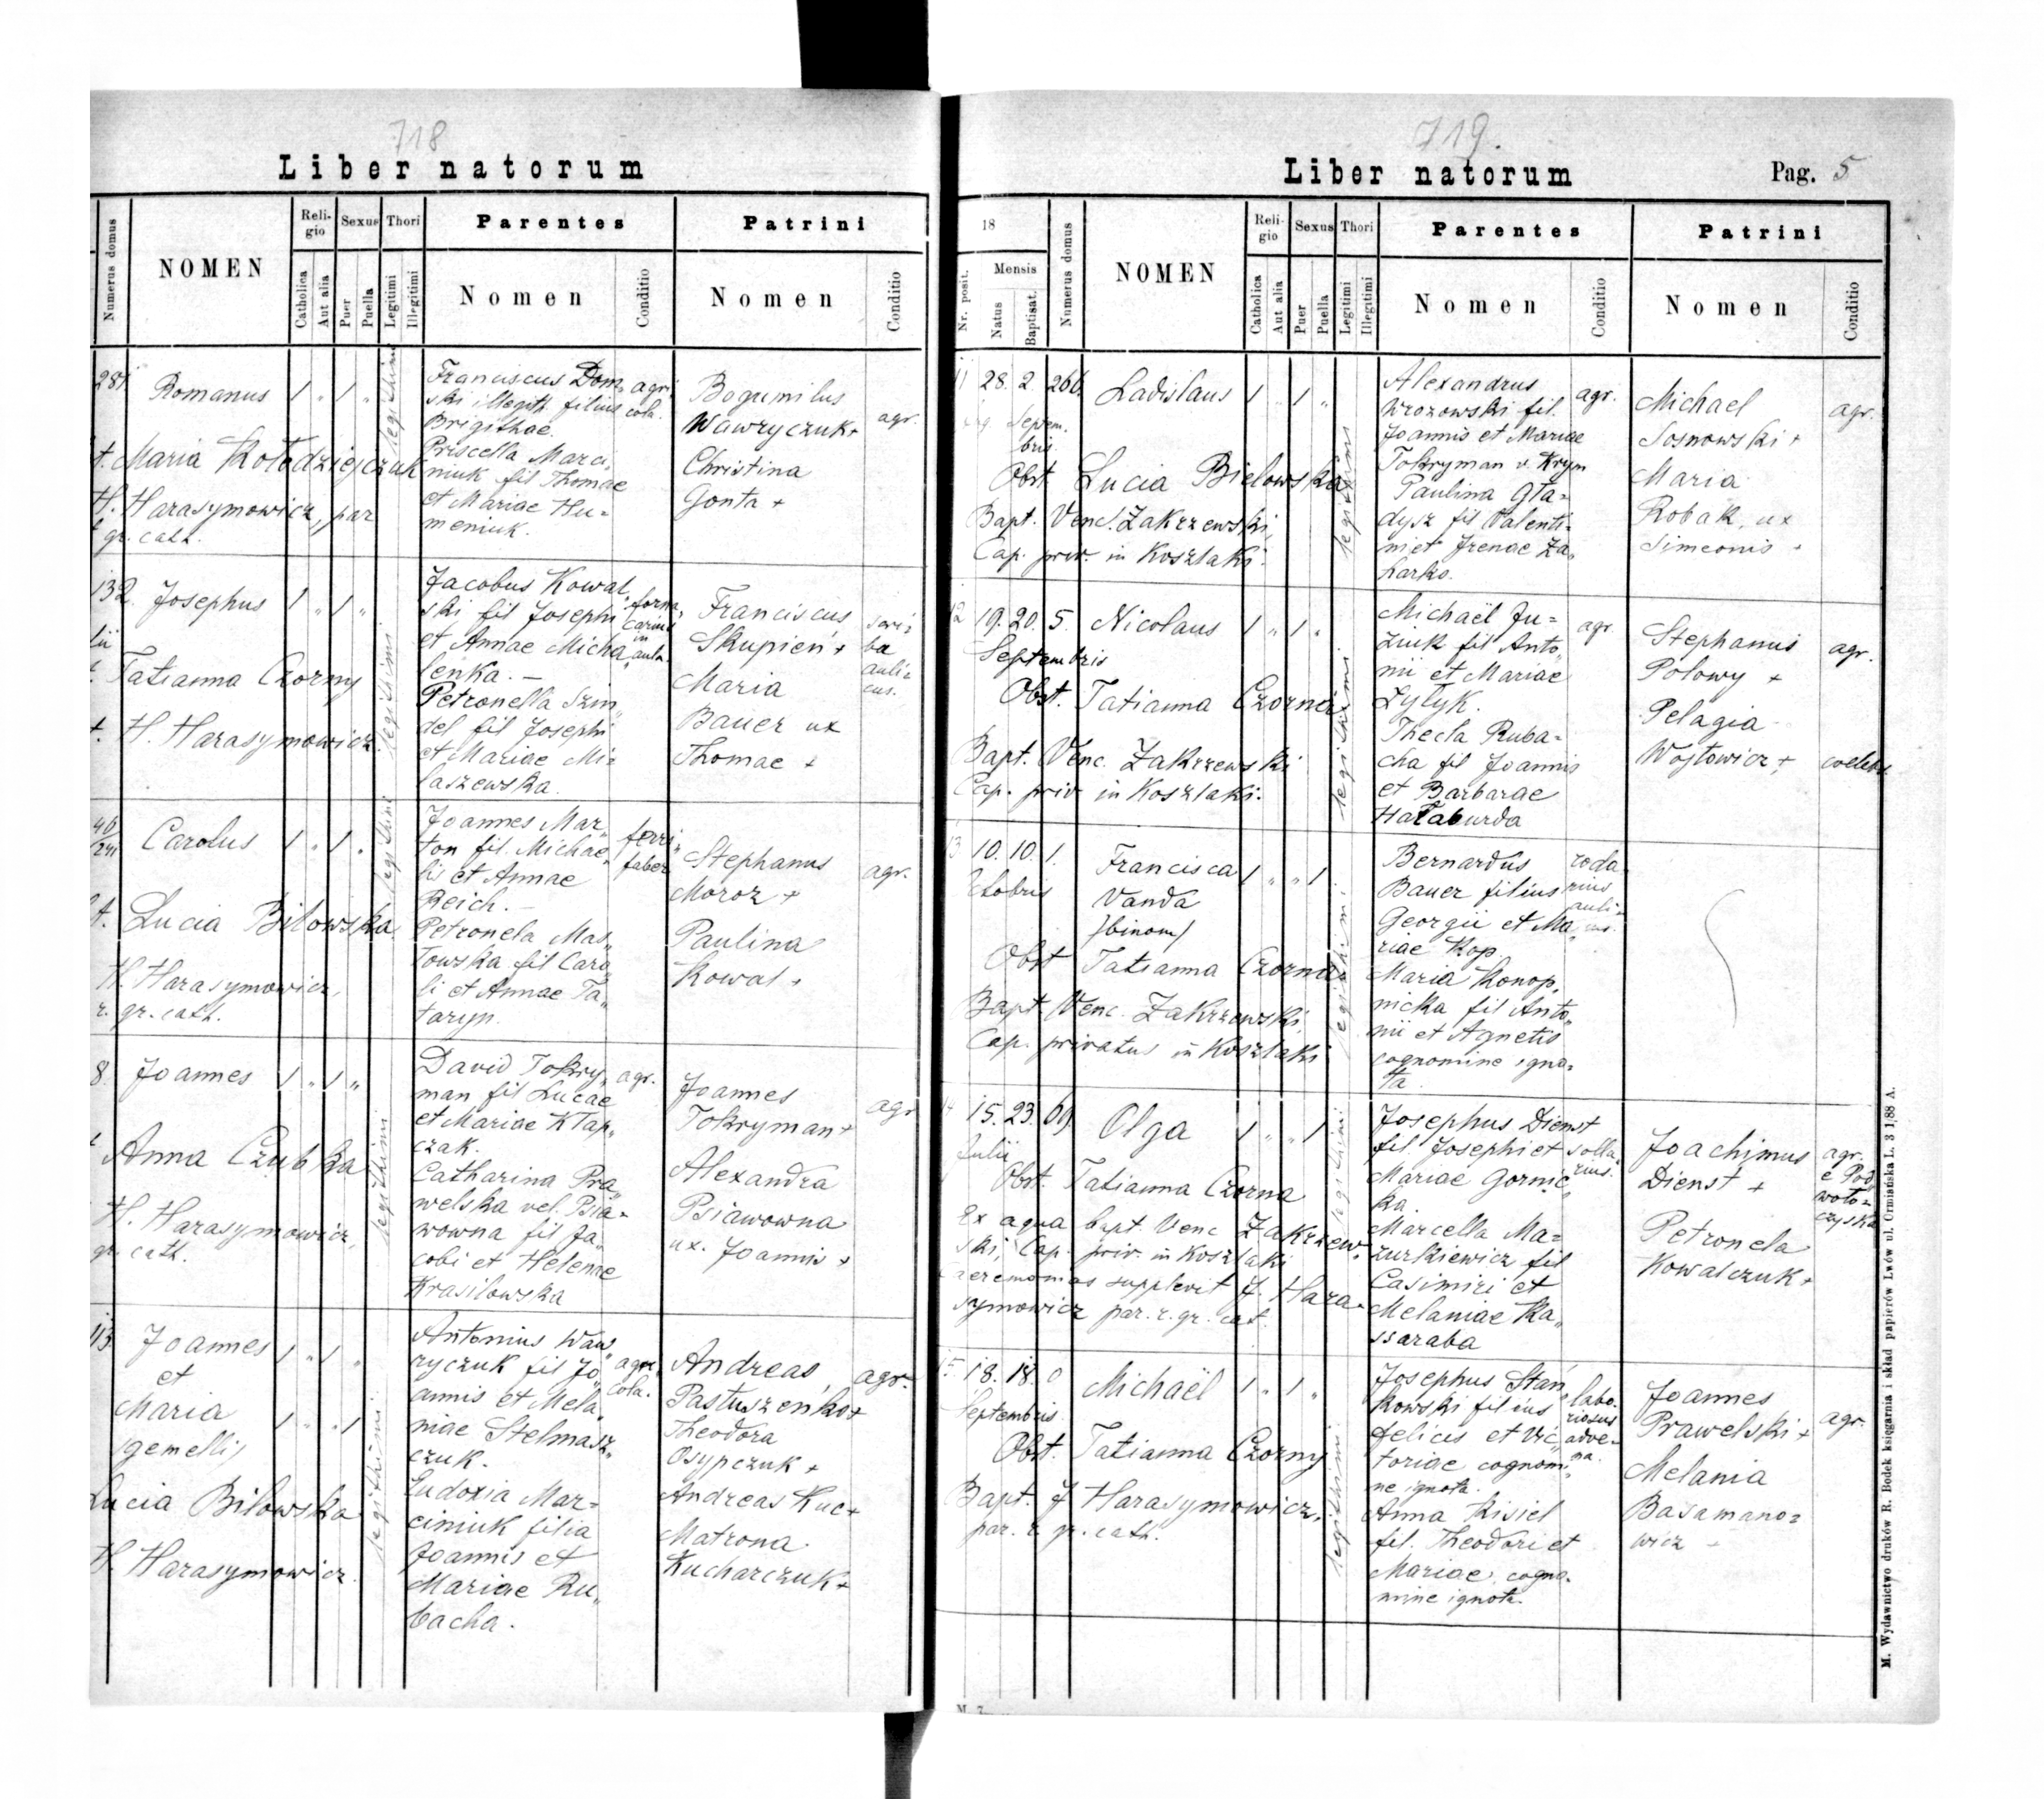 718
Liber natorum
Numerus domus
NOMEN
Reli-
gio
Catholica
Aut alia
Sexus
Puer
Puella
Thori
Legitimi
Illegitimi
Parentes
Nomen
Conditio
Patrini
Nomen
Conditio
281
Romanus
1 " 1 "
legitimi
Maria Kołodziejczuk
H. Harasymowicz, par
gr. cath.
Franciscus Dom„
ski illegit. filius
Brigithae.
Priscella Marci„
niuk fil Thomae
et Mariae Hu=
meniuk.
agri
cola.
Bogumilus
Wawryczuk+
Christina
Gonta +
agr.
132
Josephus
1 " 1 "
legitimi
Tatianna Czorny
H. Harasymowicz
Jacobus Kowal„
ski fil Josephi
et Annae Micha„
lenka. —
Petronella Szin„
del fil Josephi
et Mariae Mi=
laszewska.
forna„
carius
in
aula.
Franciscus
Skupień +
Maria
Bauer ux
Thomae +
scri=
ba
auli=
cus.
46
/241
Carolus
1 " 1 "
legitimi
Lucia Bilowska
H. Harasymowicz,
r. gr. cath.
Joannes Mar„
ton fil. Michae„
lis et Annae
Reich. —
Petronela Mas„
łowska fil Caro„
li et Annae Ta„
taryn.
ferri„
faber
Stephanus
Moroz +
Paulina
Kowal +
agr.
8
Joannes
1 " 1 "
legitimi
Anna Czubka
H. Harasymowicz,
gr. cath.
David Tokry„
man fil Lucae
et Mariae Kłap„
czak.
Catharina Pra„
welska vel. Psia=
wowna fil Ja„
cobi et Helenae
Krasilowska
agr.
Joannes
Tokryman+
Alexandra
Psiawowna
ux. Joannis +
agr
113
Joannes
et
Maria
gemelli
1 " 1 "
1 " " 1
legitimi
Lucia Bilowska
H. Harasymowicz.
Antonius Waw„
ryczuk fil Jo„
annis et Mela„
niae Stelmasz„
czuk.
Eudoxia Mar=
ciniuk filia
Joannis et
Mariae Ru„
bacha.
agri
cola.
Andreas
Pastuszenko+
Theodora
Osypczuk +
Andreas Kuc+
Matrona
Kucharczuk+
agr.
719.
Liber natorum
Pag. 5
18
Nr. posit.
Mensis
Natus
Baptisat.
Numerus domus
NOMEN
Reli-
gio
Catholica
Aut alia
Sexus
Puer
Puella
Thori
Legitimi
Illegitimi
Parentes
Nomen
Conditio
Patrini
Nomen
Conditio
11 28. 2. 266.
Septem.
bris
Ladislaus
1 " 1 "
legitimi
Obst Lucia Bielowska
Bapt. Venc. Zakrzewski,
Cap. priv. in Koszlaki.
Alexandrus
Wrozowski fil.
Joannis et Mariae
Tokryman v. Krym
Paulina Gła=
dysz fil Valenti=
ni et Irenae Za„
harko.
agr.
Michael
Sosnowski +
Maria
Robak, ux
Simeonis +
agr.
12 19. 20. 5.
Septembris
Nicolaus
1 " 1 "
legitimi
Obst. Tatianna Czorna
Bapt. Venc. Zakrzewski
Cap. priv in Koszlaki.
Michaël Ju=
zuk fil Anto„
nii et Mariae
Zylyk.
Thecla Ruba=
cha fil Joannis
et Barbarae
Hałaburda
agr.
Stephanus
Połowy +
Pelagia
Wojtowicz +
agr.
coelebs.
13 10. 10. 1.
Francisca
Vanda
/binom/
1 " " 1
legitimi
Obst Tatianna Czorna
Bapt. Venc. Zakrzewski
Cap. privatus in Koszlaki
Bernardus
Bauer filius
Georgii et Ma„
riae Kop
Maria Konop„
nicka fil Anto„
nii et Agnetis
cognomine igno=
ta.
14 15. 23. 69.
Julii
Olga
1 " " 1
legitimi
Obst. Tatianna Czorna
Ex aqua bapt. Venc Zakrzew=
ski, Cap. priv. in Koszlaki
Caeremonias supplevit J. Hara=
symowicz par. r. gr. cat.
Josephus Dienst
fil. Josephi et
Mariae Gornic„
ka.
Marcella Ma=
zurkiewicz fil
Casimiri et
Melaniae Ka„
ssaraba
Joachimus
Dienst +
Petronela
Kowalczuk+
agr.
e Pod
woło=
czyska
15 18. 18. 0
Septembris
Michaël
1 " 1 "
legitimi
Obst. Tatianna Czorny
Bapt. J Harasymowicz,
par. r. gr. cath.
Josephus Stań„
kowski filius
Felicis et Vic„
toriae cognomi„
ne ignota.
Anna Kisiel
fil. Theodori et
Mariae, cogno=
mine ignota.
labo„
riosus
adve=
na.
Joannes
Prawelski +
Melania
Basamano=
wicz -
agr.
M. Wydawnictwo druków R. Bodek księgarnia i skład papierów Lwów ul. Ormiańska L. 3 1|88 A.